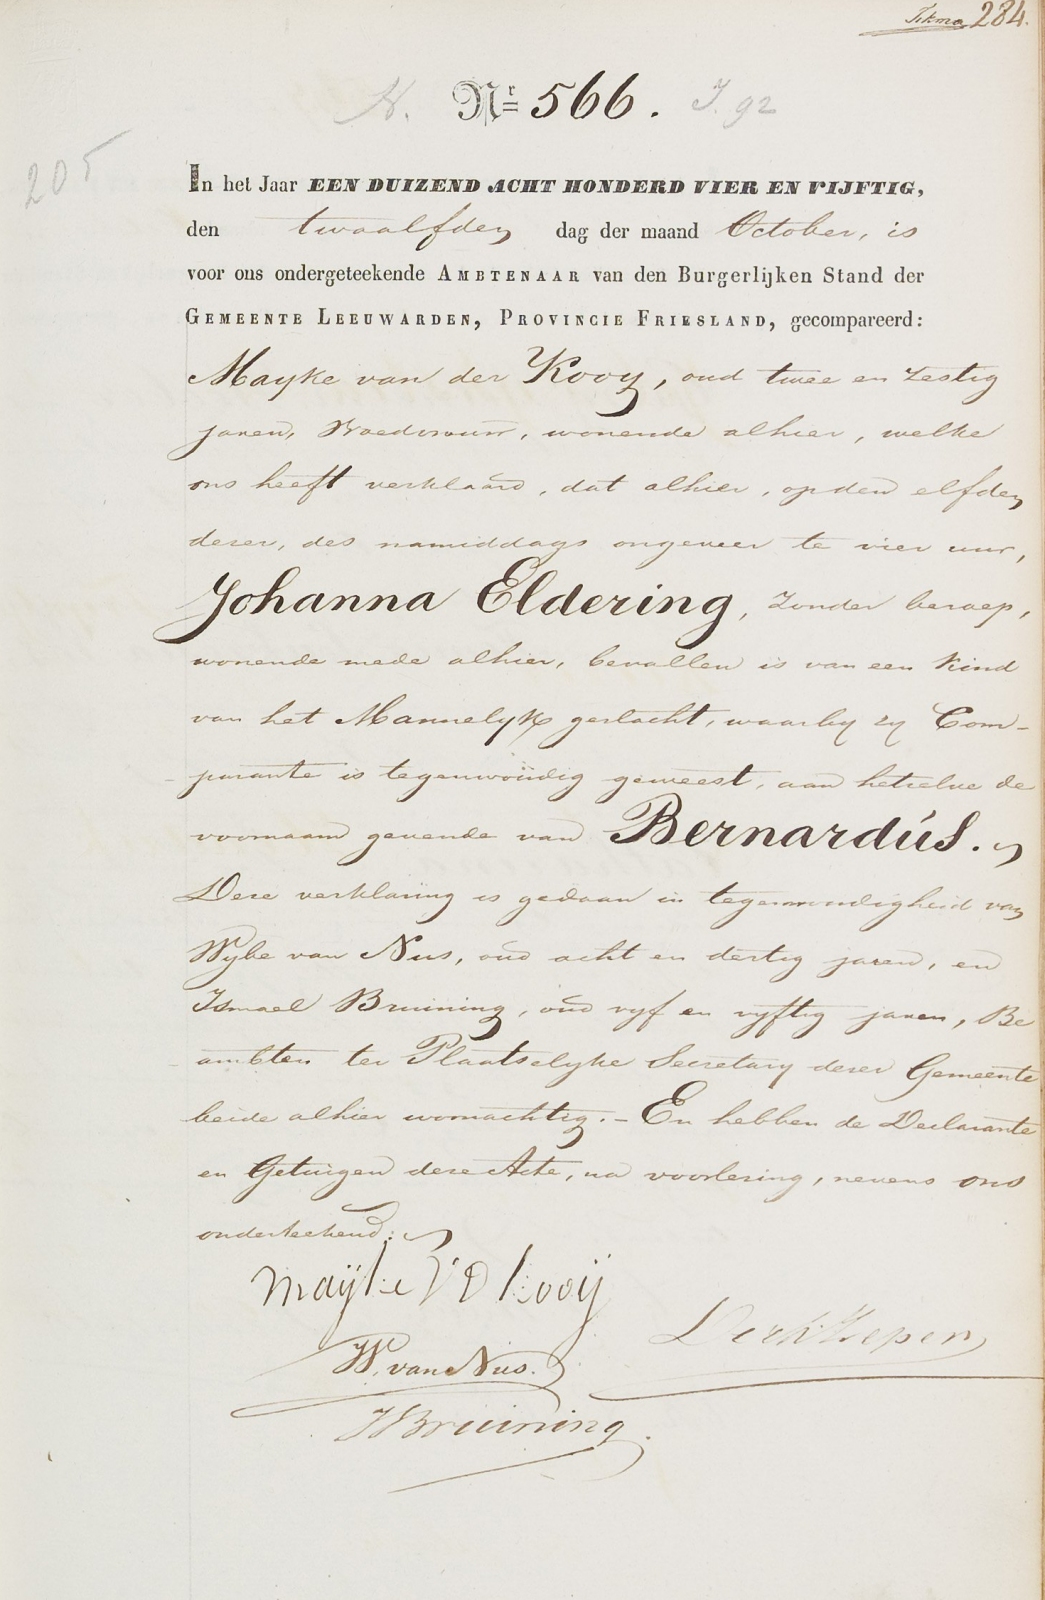 284.
N. Nr 566. J. 92
205
In het Jaar EEN DUIZEND ACHT HONDERD VIER EN VIJFTIG,
den twaalfden dag der maand October, is
voor ons ondergeteekende AMBTENAAR van den Burgerlijken Stand der
GEMEENTE LEEUWARDEN, PROVINCIE FRIESLAND, gecompareerd:
Mayke van der Kooy, oud twee en zestig
jaren, Vroedvrouw, wonende alhier, welke
ons heeft verklaard, dat alhier, op den elfden
dezer, des namiddags ongeveer te vier uur,
Johanna Eldering, zonder beroep,
wonende mede alhier, bevallen is van een kind
van het Mannelyk geslacht, waarby zy Com-
parante is tegenwoordig geweest, aan hetzelve de
voornaam gevende van Bernardús.
Deze verklaring is gedaan in tegenwoordigheid van
Wybe van Nus, oud acht en dertig jaren, en
Ismael Bruining, oud vyf en vyftig jaren, Be
ambten ter Plaatselyke Secretary dezer Gemeente
beide alhier woonachtig. – En hebben de Declarante
en Getuigen deze Acte, na voorlezing, nevens ons
onderteekend:
Maijke V D Kooij
Dirk Zeper
W. van Nus.
I Bruining.